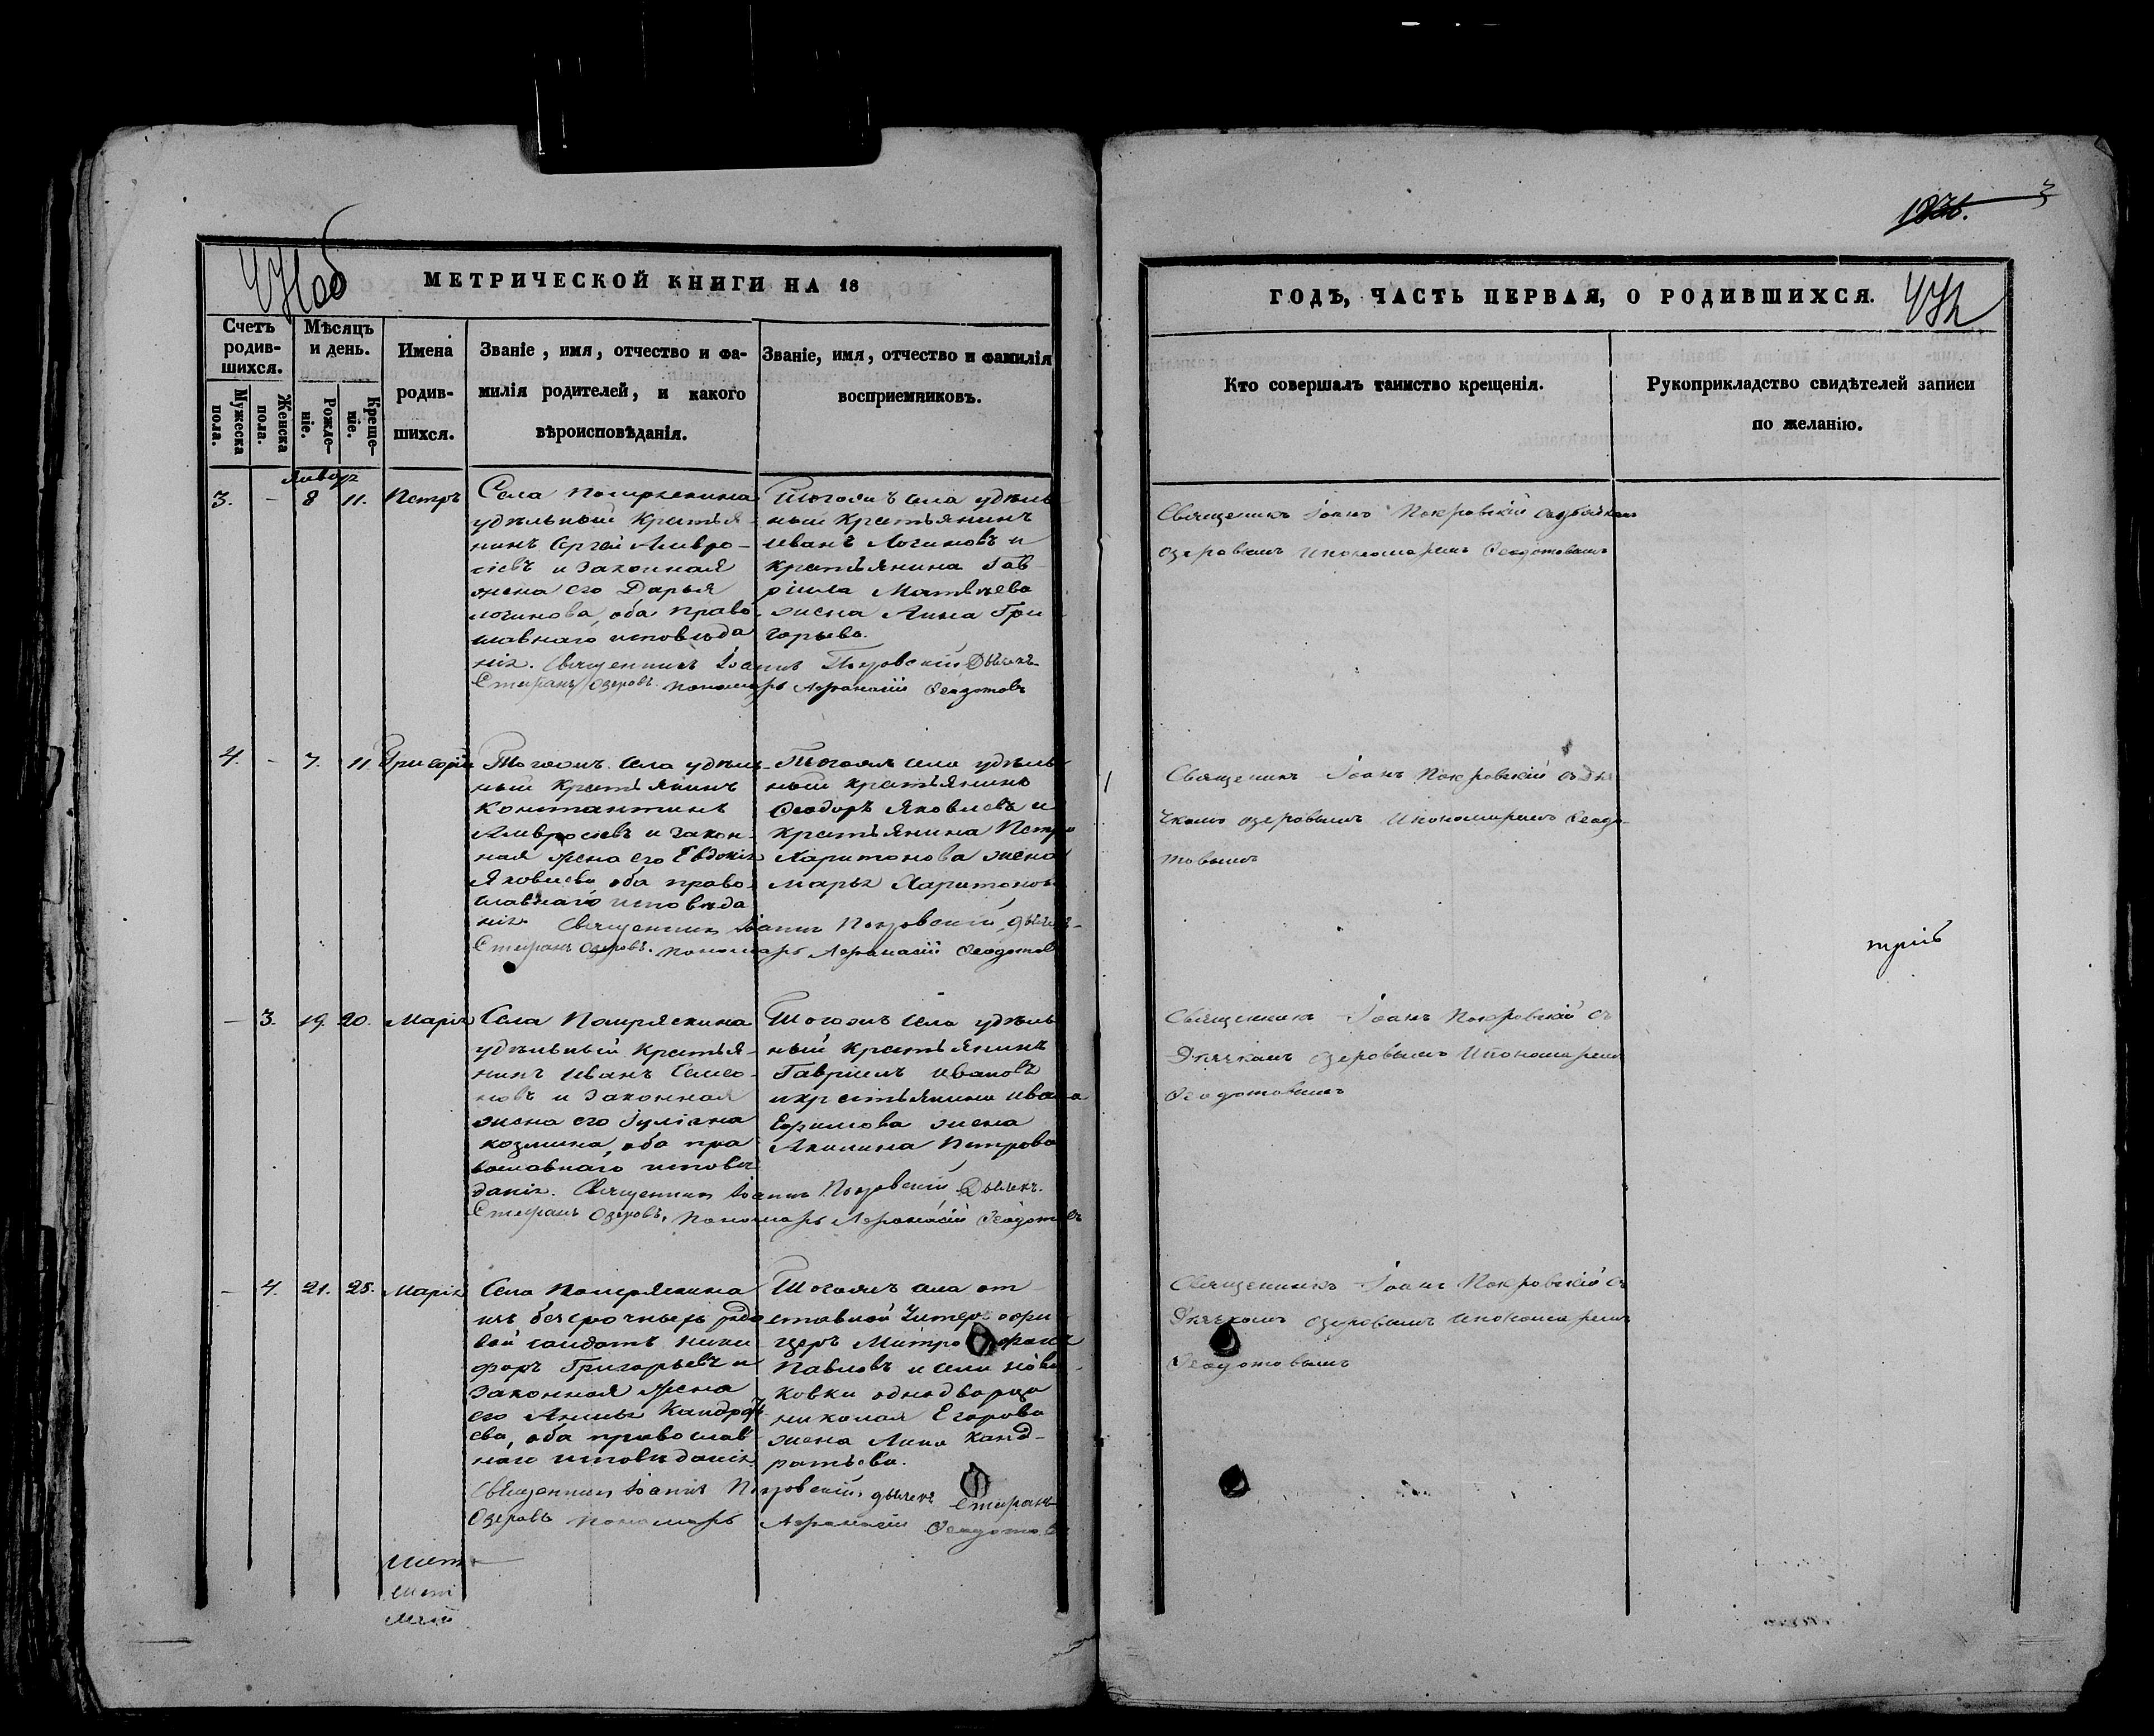 МЕТРИЧЕСКОЙ КНИГИ НА 18
Счетъ родив-шихся.
Мужеска пола.
Женска пола.
Мѣсяцъ и день.
Рожде-ніе.
Креще-ніе.
Имена родив-шихся.
Званіе, имя, отчество и фа-
милія родителей, и какого
вѣроисповѣданія.
Званіе, имя, отчество и фамилія
восприемниковъ.
Январ
3. - 8 11. Петръ
Села
удѣльный Крестья-
нинъ Сергей Амвро-
сіевъ и законная
жена его Дарья
логинова, оба право
славнаго исповѣда
нія. Священникъ Іоаннъ Покровскій Дьячекъ
Стефанъ Озеровъ. пономарь Афанасій Ѳеодотовъ
Тогожъ села удѣль
ный Крестьянинъ
Иванъ Логиновъ и
крестьянина Гав
ріила Матвѣева
жена Анна Гри
горьева.
4. - 7. 11. Григорій
Тогожъ Села удѣль-
ный Крестьянинъ
Константинъ
Амвросіевъ и закон-
ная жена его Евдокія
Яковлева, оба право-
славнаго исповѣда
нія. Священникъ Іоаннъ Покровскій, дьячекъ
Стефанъ Озеровъ. пономарь Афанасій Ѳеодотов
Тогожъ села удѣль
ный крестьянинъ
Ѳеодоръ Яковлевъ и
крестьянина Петра
Харитонова жена
марья Харитонов
- 3. 19. 20. Марія
Села
удѣльный Крестья-
нинъ Иванъ Семео-
новъ и законная
жена его Іуліана
козмина, оба пра
вославнаго исповѣ
данія. Священникъ Іоаннъ Покровскій Дьячекъ.
Стефанъ Озеровъ, пономарь Афанасій Ѳеодотовъ
Тогожъ села удѣль
ный крестьянинъ
Гавріилъ Ивановъ
и крестьянина Ивана
Ефимова жена
Акилина Петрова
- 4. 21. 25. Марія
Села
рядо
вой солдатъ ники
форъ Григорьевъ и
законная жена
его Анна Кандрать
ева, оба православ
наго исповѣданія.
Священникъ Іоаннъ Покровскій, дьячекъ Стефанъ
Озеровъ пономарь Афанасій Ѳеодотовъ
Тогожъ села от
ставной Унтеръ офи
церъ Митрофанъ
Павловъ и села
ковки однодворца
николая Егорова
жена Анна Канд-
ратьева.
ГОДЪ, ЧАСТЬ ПЕРВАЯ, О РОДИВШИХСЯ.
Кто совершалъ таинство крещенія.
Рукоприкладство свидѣтелей записи
по желанію.
Священикъ Іоанъ Покровскій съ дьячкомъ
озеровымъ и пономаремъ Ѳеодотовымъ
Священикъ Іоанъ Покровскій съ дья
чкомъ озеровымъ и пономаремъ Ѳеодо-
товымъ
Священникъ Іоанъ Покровскій съ
Дьячкомъ озеровымъ и пономаремъ
Ѳеодотовымъ
Священникъ Іоанъ Покровскій съ
Дьячкомъ озеровымъ и пономаремъ
Ѳеодотовымъ